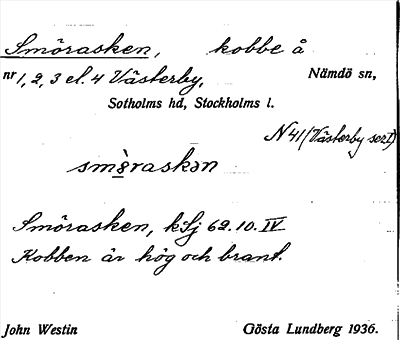 Smörasken, kobbe å
nr 1, 2, 3 el. 4 Västerby, Nämdö sn,
Sotholms hd, Stockholms l.
N 41 (Västerby ser I)
Smörasken, kSj 62.10.IV
Kobben är hög och brant.
John Westin Gösta Lundberg 1936.